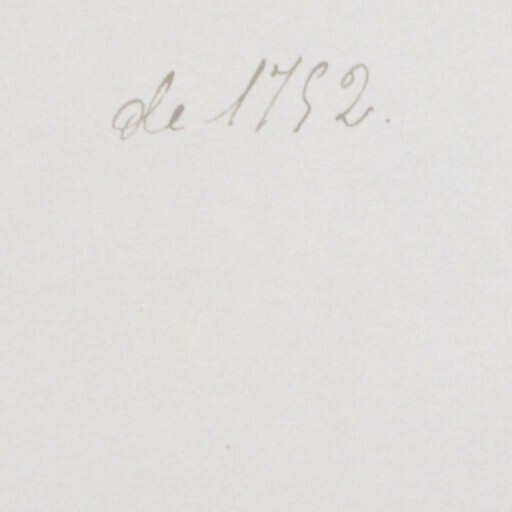 de 1752.